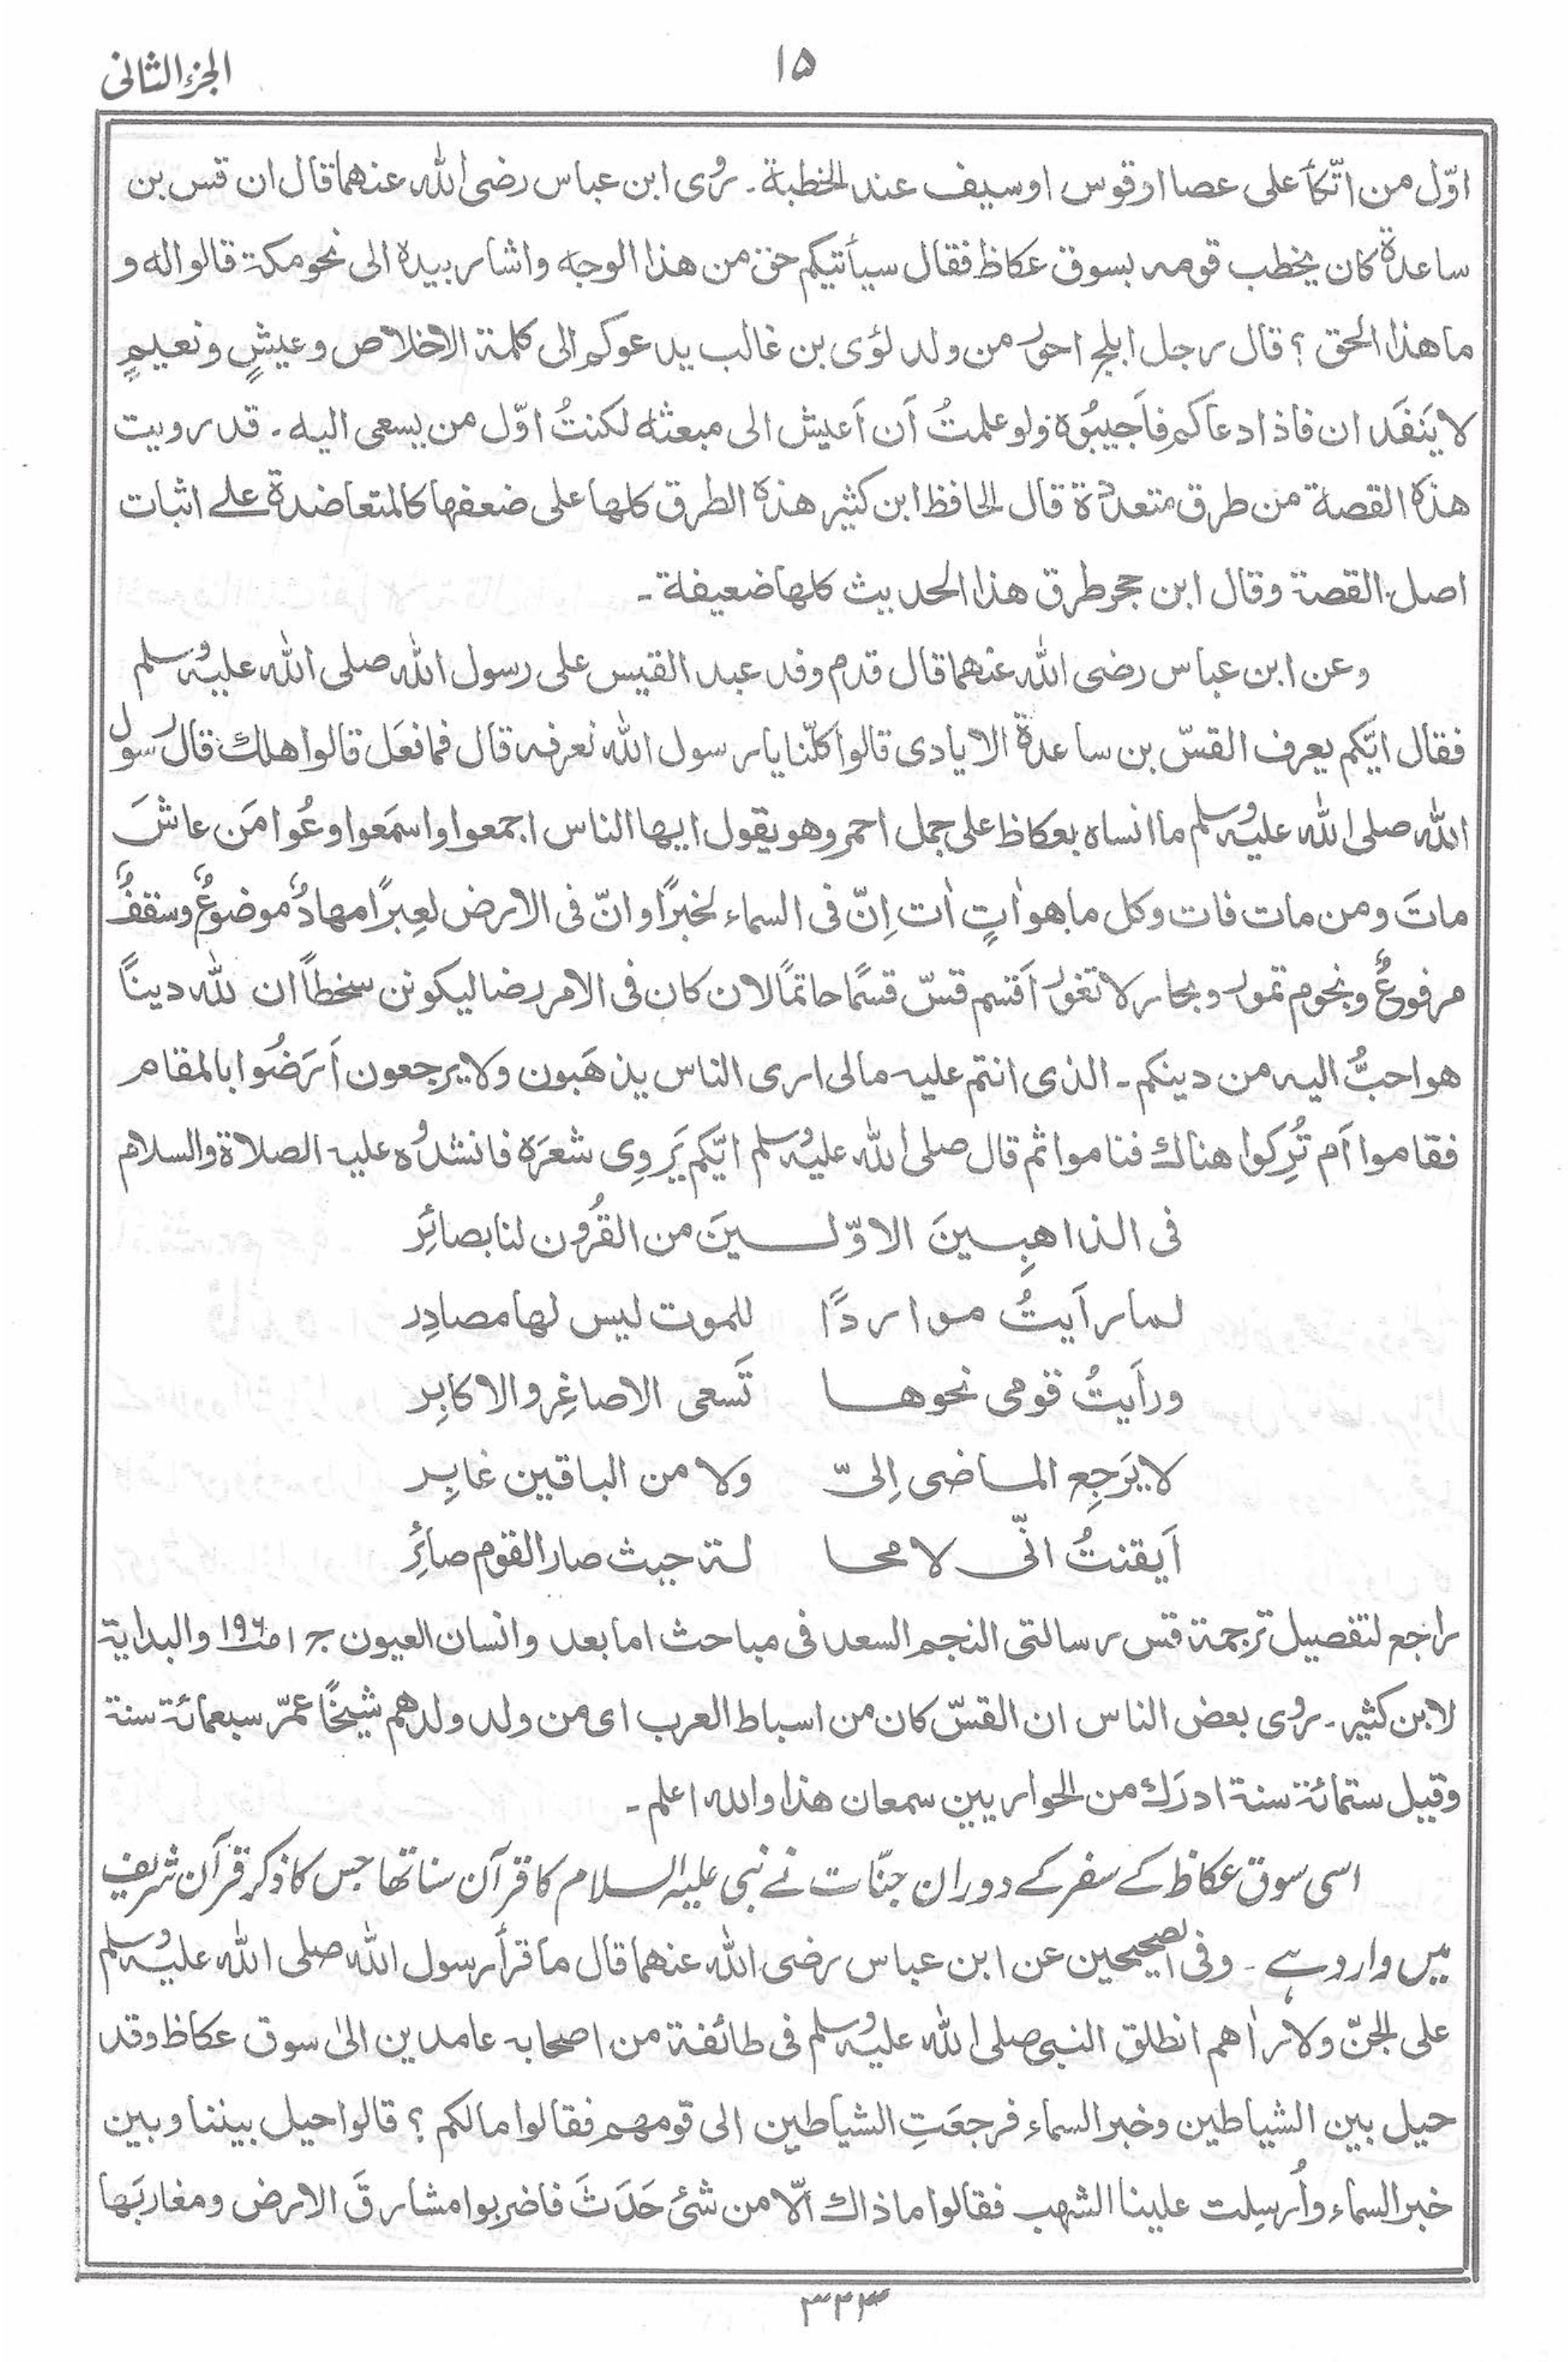 الجزء الثانی
۱۵
اوّل من اتّكأ علی عصا او قوس او سیف عند الخطبة۔ رُوی ابن عباس رضی اللّٰه عنهما قال ان قس بن
ساعدة كان یخطب قومه بسوق عكاظ فقال سیأتیكم حق من هذا الوجه واشار بیده الی نحو مكة قالوا له و
ما هذا الحق ؟ قال رجل ابلج احور من ولد لؤی بن غالب یدعوكم الی كلمة الاخلاص وعیشٍ ونعیمٍ
لا یَنفَد ان فاذا دعاكم فاَجیبُوه ولو علمتُ اَن اَعیش الی مبعثه لكنتُ اوّل من یسعی الیه۔ قد رویت
هذه القصة من طرق متعدّدة قال الحافظ ابن كثیر هذه الطرق كلها علی ضعفها كالمتعاضدة علے اثبات
اصل القصة وقال ابن حجر طرق هذا الحدیث كلها ضعیفة۔
وعن ابن عباس رضی اللّٰه عنهما قال قدم وفد عبد القیس علی رسول اللّٰه صلی اللّٰه علیه وسلم
فقال ایّكم یعرف القسّ بن ساعدة الایادی قالوا كلّنا یا رسول اللّٰه نعرفه قال فما فعَل قالوا هلك قال رسول
اللّٰه صلی اللّٰه علیه وسلم ما انساه بعكاظ علی جمل احمر وهو یقول ایها الناس اجمعوا واسمَعوا وعُوا مَن عاشَ
ماتَ ومن مات فات وكل ما هو اٰتٍ اٰت اِنّ فی السماء لخبرًا وانّ فی الارض لعِبرًا مهادٌ موضوعٌ وسقفٌ
مرفوعٌ ونجوم تمور وبحار لا تغور اَقسم قسّ قسمًا حاتمًا لان كان فی الامر رضا لیكونن سخطاً ان للّٰه دیناً
هو احبُّ الیه من دینكم۔ الذی انتم علیه مالی اری الناس یذهَبون ولا یرجعون اَرَضُوا بالمقام
فقاموا اَم تُرِكوا هناك فناموا ثم قال صلی اللّٰه علیه وسلم ایّكم یَروِی شعرَه فانشدُوه علیه الصلاة والسلام
فی الذاهِبِینَ الاوّلِینَ من القُرون لنا بصائِرَ
لما رأیتُ مواردًا للموت لیس لها مصادِر
ورأَیتُ قومی نحوها تَسعی الاصاغِر والاكابِر
لا یَرجِع الماضی اِلیّ ولا من الباقین غابِر
اَیقنتُ انّی لا محا لة حیث صار القوم صائِر
راجع لتفصیل ترجمة قس رسالتی النجم السعد فی مباحث اما بعد وانسان العیون ج ۱ ص۱۹۶ والبدایة
لابن كثیر۔ رُوی بعض الناس ان القسّ كان من اسباط العرب ای من ولد ولدهم شیخًا عمّر سبعمائة سنة
وقیل ستمائة سنة ادرَك من الحواریین سمعان هذا والله اعلم۔
اسی سوق عکاظ کے سفر کے دوران جنّات نے نبی علیہ السلام کا قرآن سنا تھا جس کا ذکر قرآن شریف
میں وارد ہے۔ وفی الصحیحین عن ابن عباس رضی اللّٰه عنهما قال ما قرأ رسول اللّٰه صلی اللّٰه علیه وسلم
علی الجنّ ولا راٰهم انطلق النبی صلی اللّٰه علیه وسلم فی طائفة من اصحابه عامدین الیٰ سوق عكاظ وقد
حیل بین الشیاطین وخبر السماء فرجعَتِ الشیاطین الی قومهم فقالوا مالكم ؟ قالوا حیل بیننا وبین
خبر السماء واُرسِلت علینا الشهب فقالوا ما ذاك اَلّا من شئ حَدَثَ فاضربوا مشارقَ الارض ومغاربَها
۳۳۳